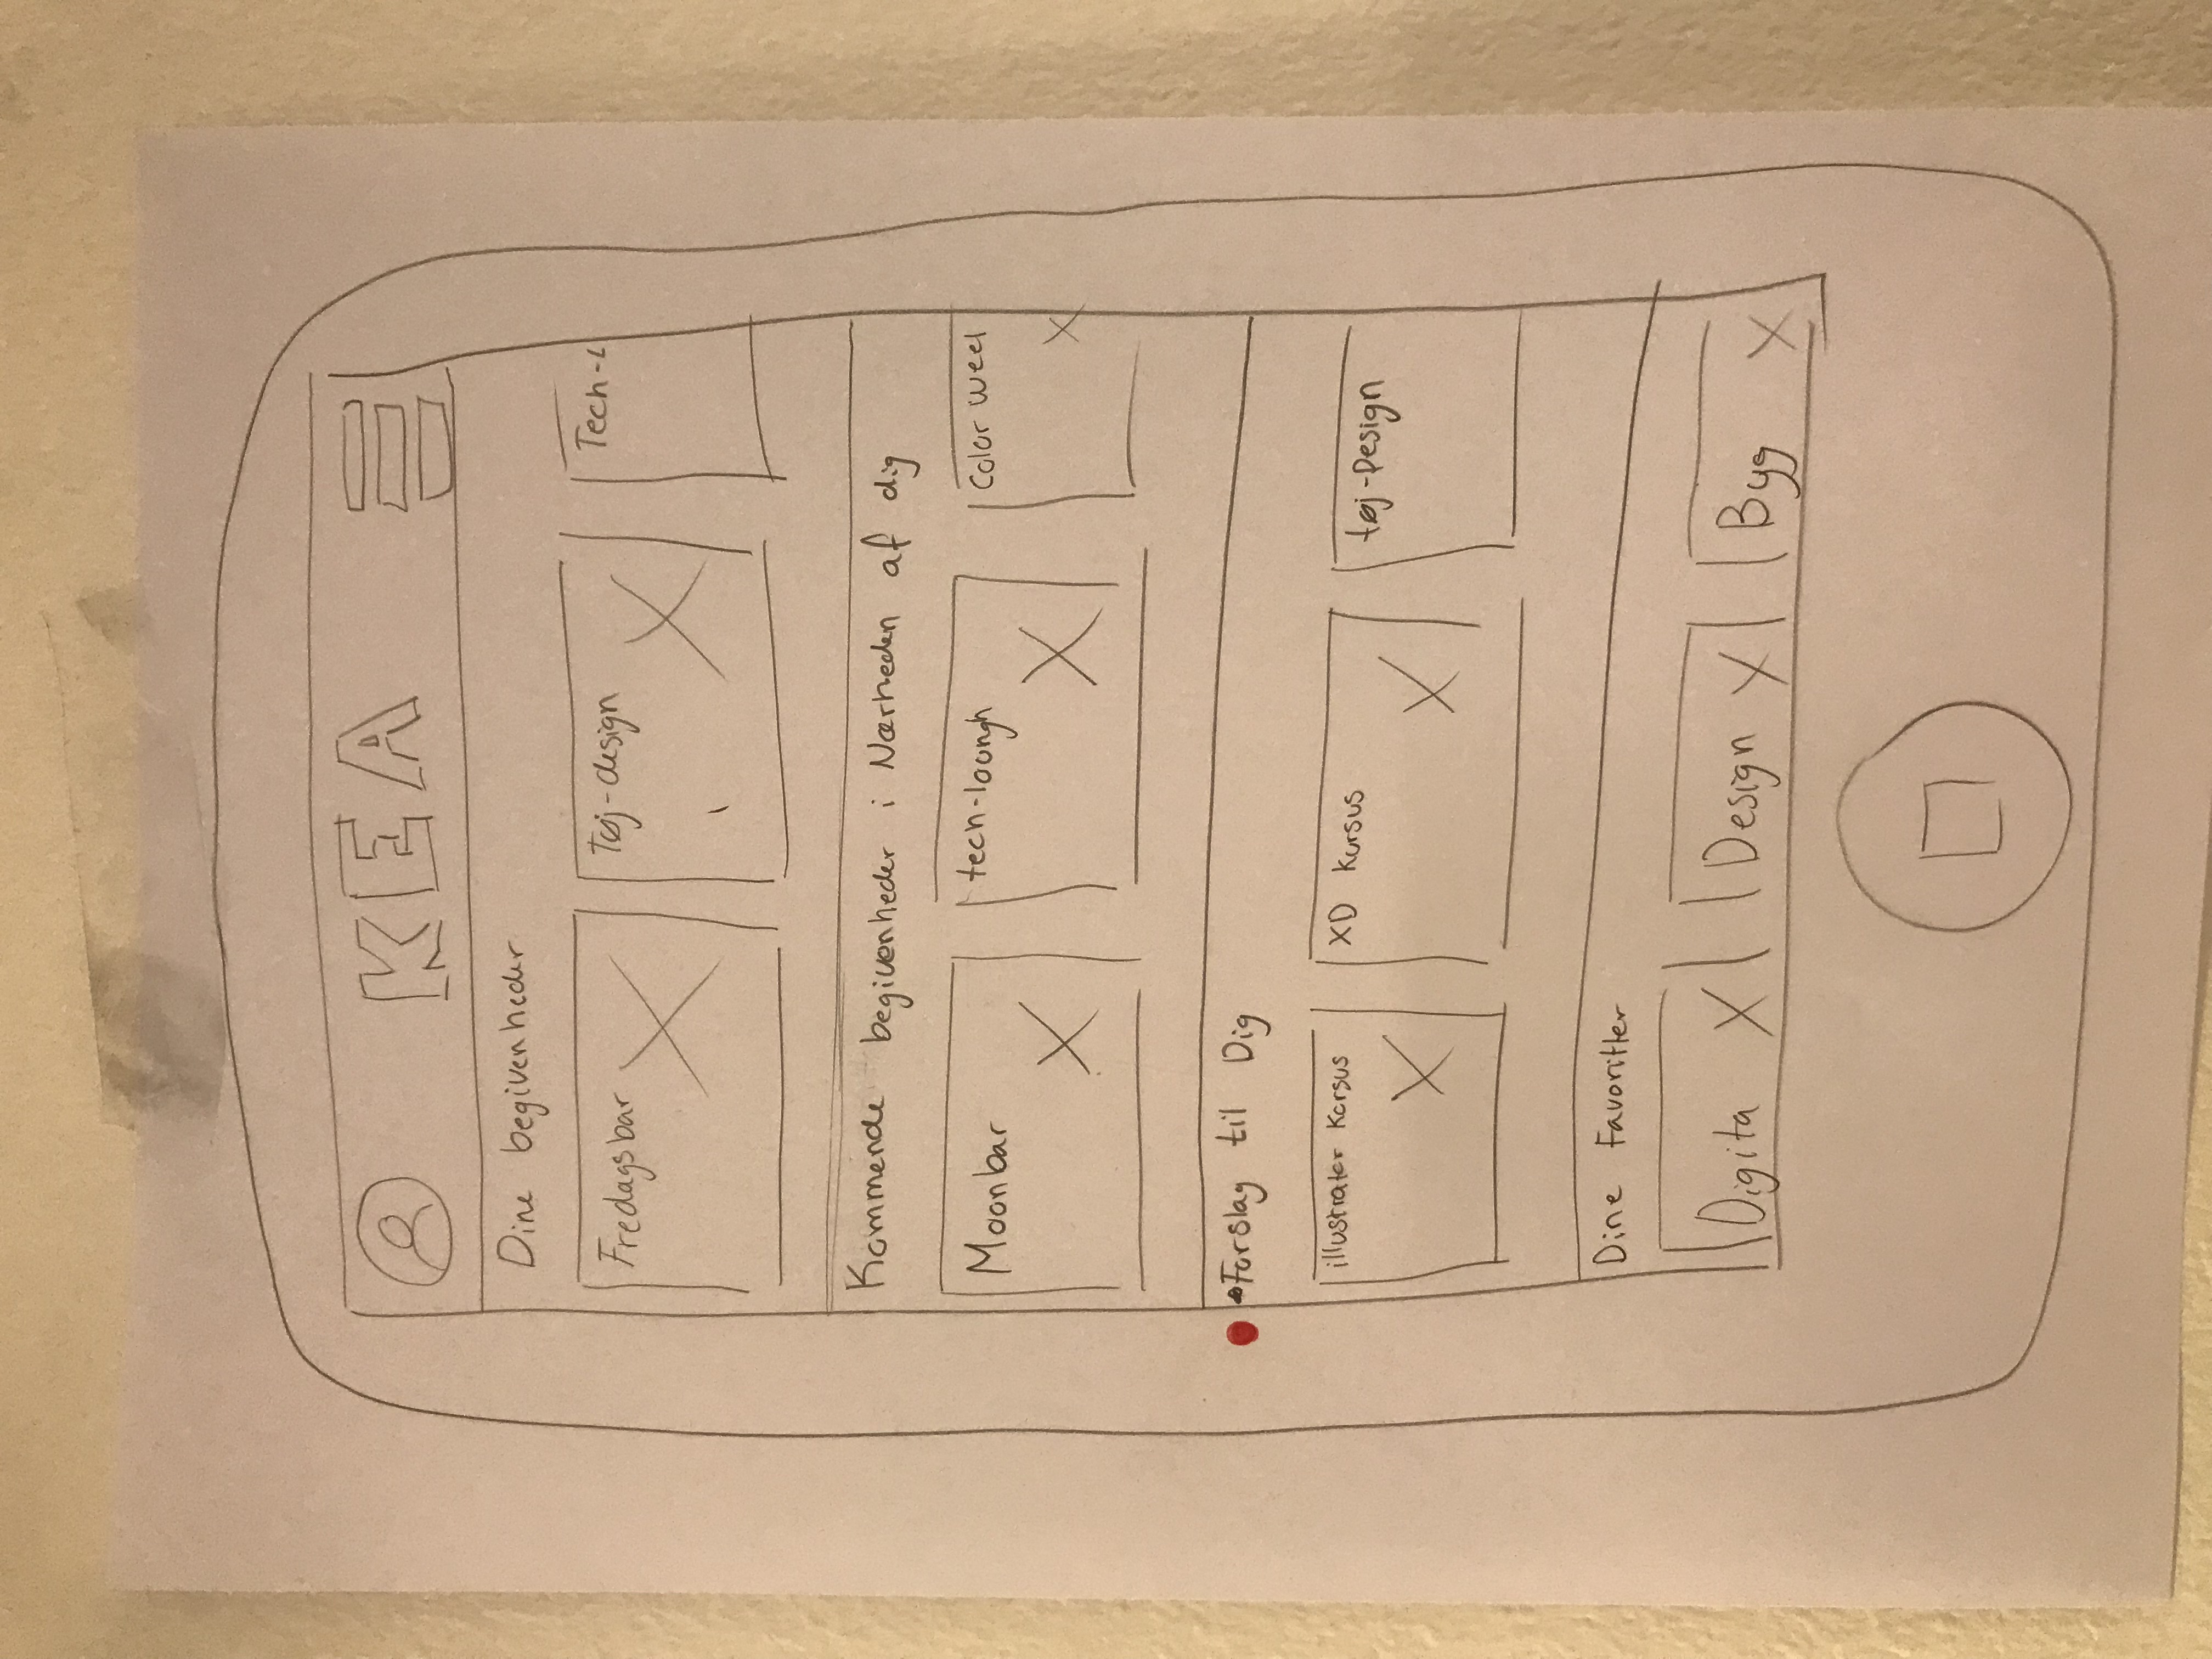 KEA
Dine begivenheder
Fredagsbar
Tøj-design
Tech-L
Kommende begivenheder i Nærheden af dig
Moonbar
tech-loungh
Color weel
Forslag til Dig
illustrater Kursus
XD Kursus
tøj-Design
Dine Favoritter
Digita
Design
Byg